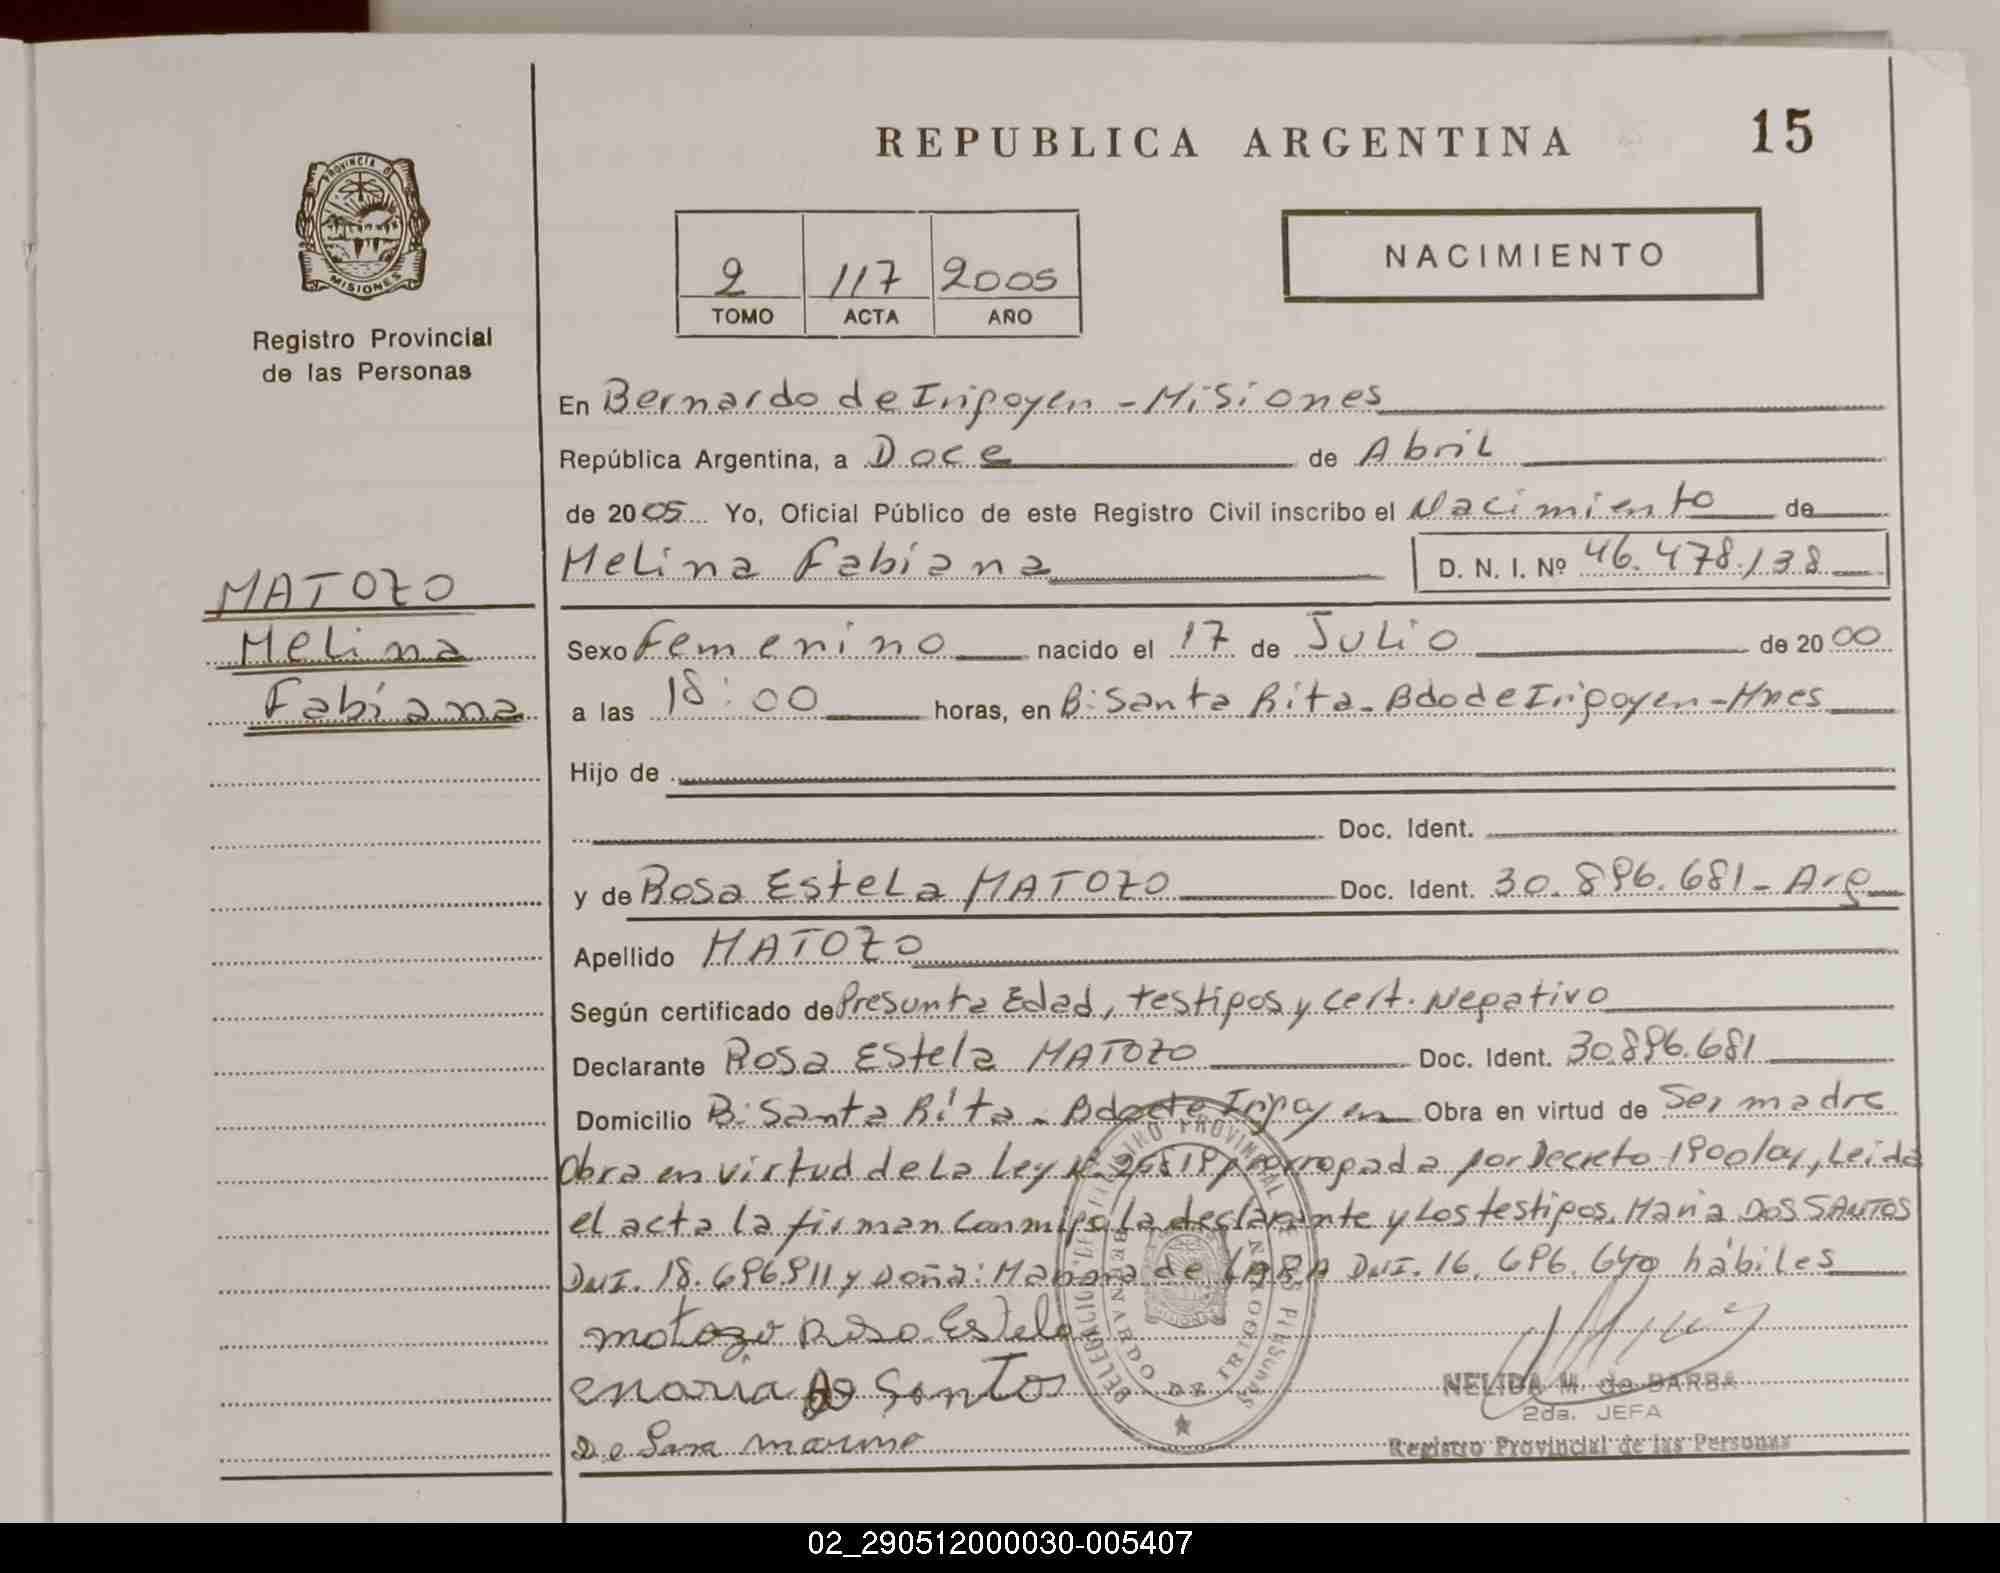 REPUBLICA ARGENTINA
15
PROVINCIA DE MISIONES
Registro Provincial
de las Personas
2 117 2005
TOMO ACTA AÑO
NACIMIENTO
En Bernardo de Irigoyen - Misiones
República Argentina, a Doce de Abril
de 2005 Yo, Oficial Público de este Registro Civil inscribo el Nacimiento de
Melina Fabiana D. N. I. Nº 46.478.138
MATOZO
Melina
Fabiana
Sexo Femenino nacido el 17 de Julio de 2000
a las 18:00 horas, en B: Santa Rita - Bdo de Irigoyen - Mnes
Hijo de
Doc. Ident.
y de Rosa Estela MATOZO Doc. Ident. 30.896.681 - Arg
Apellido MATOZO
Según certificado de Presunta Edad, testigos y cert. Negativo
Declarante Rosa Estela MATOZO Doc. Ident. 30.896.681
Domicilio B: Santa Rita - Bdo de Irigoyen Obra en virtud de Ser madre
Obra en virtud de la Ley Nº 25819 prorrogada por Decreto 1900/04, Leida
el acta la firman conmigo la declarante y los testigos. Maria DOS SANTOS
DNI. 18.696.911 y Doña: Marina de LARA DNI. 16.696.640 hábiles
matozo Rosa Estela
maria do Santos
De Lara marina
DELEGACION DEL REGISTRO PROVINCIAL DE LAS PERSONAS
BERNARDO DE IRIGOYEN
NELIDA M. de BARBA
2da. JEFA
Registro Provincial de las Personas
02_290512000030-005407